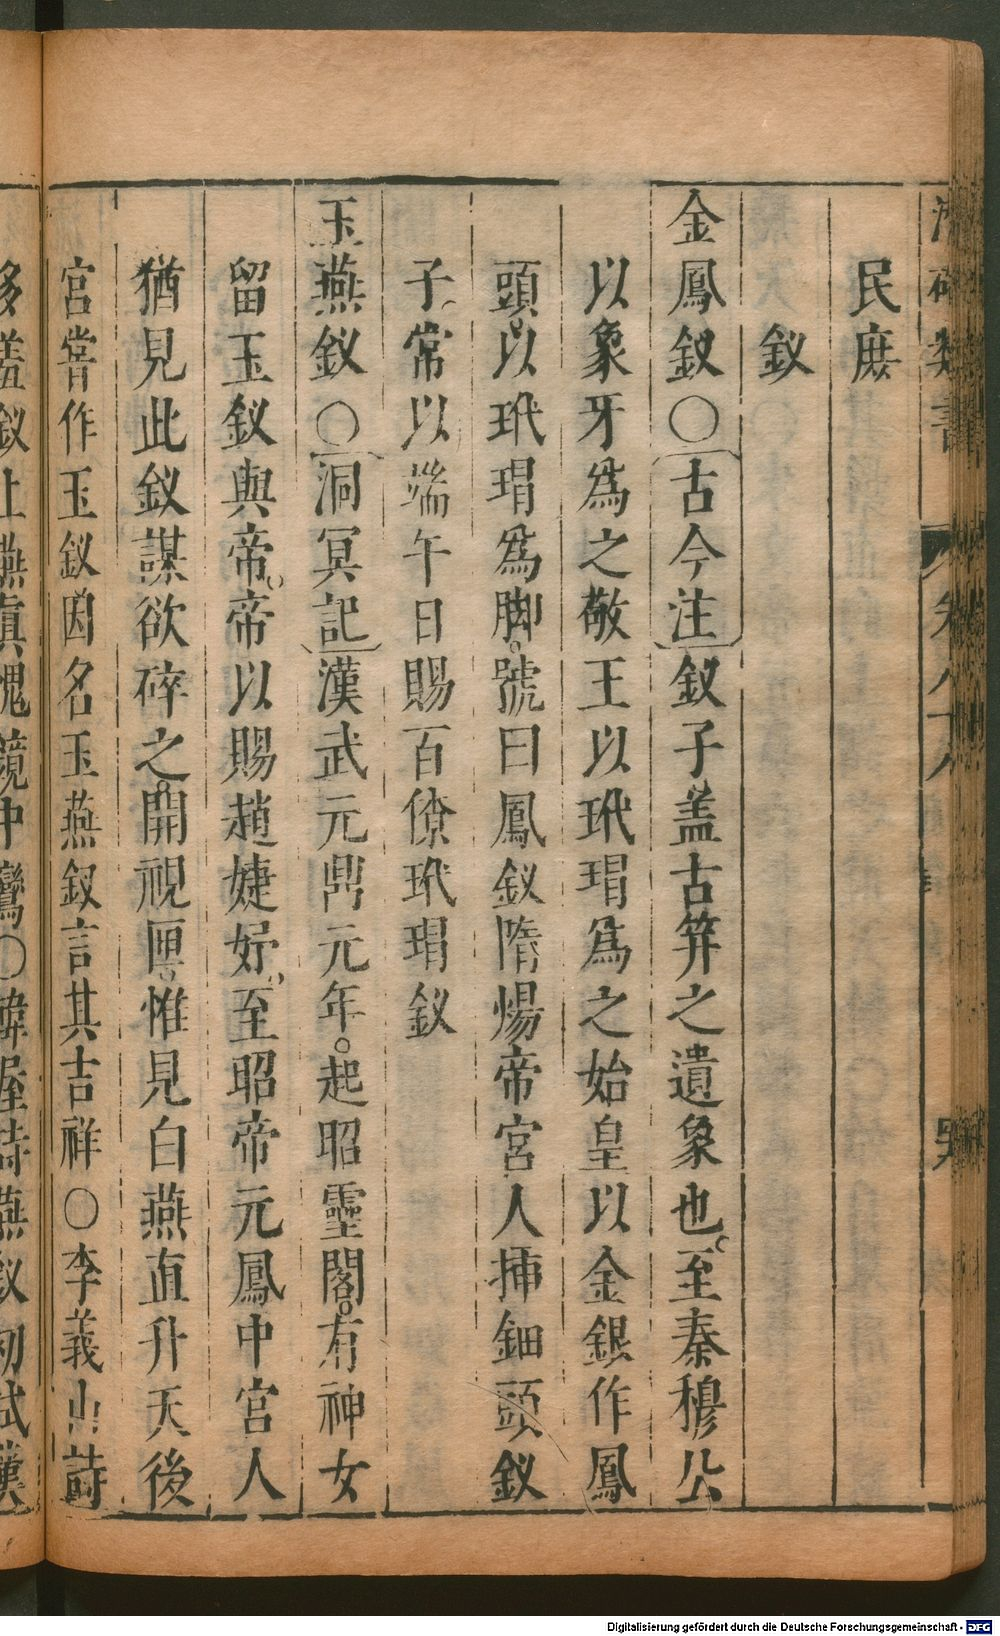 民庶
釵
金鳳釵○古今注釵子盖古笄之遺象也至秦穆公
以象牙爲之敬王以玳瑁爲之始皇以金銀作鳳
頭以玳瑁爲脚號曰鳳釵隋煬帝宮人揷鈿頭釵
子常以端午日賜百僚玳瑁釵
玉燕釵○洞冥記漢武元鼎元年起昭靈閣有神女
留玉釵與帝帝以賜趙婕妤至昭帝元鳳中宮人
猶見此釵謀欲碎之開視匣惟見白燕直升天後
宮嘗作玉釵因名玉燕釵言其吉祥○李義山詩
多羞釵上燕眞愧鏡中鸞○韓偓詩燕釵初試漢
Digitalisierung gefördert durch die Deutsche Forschungsgemeinschaft - DFG